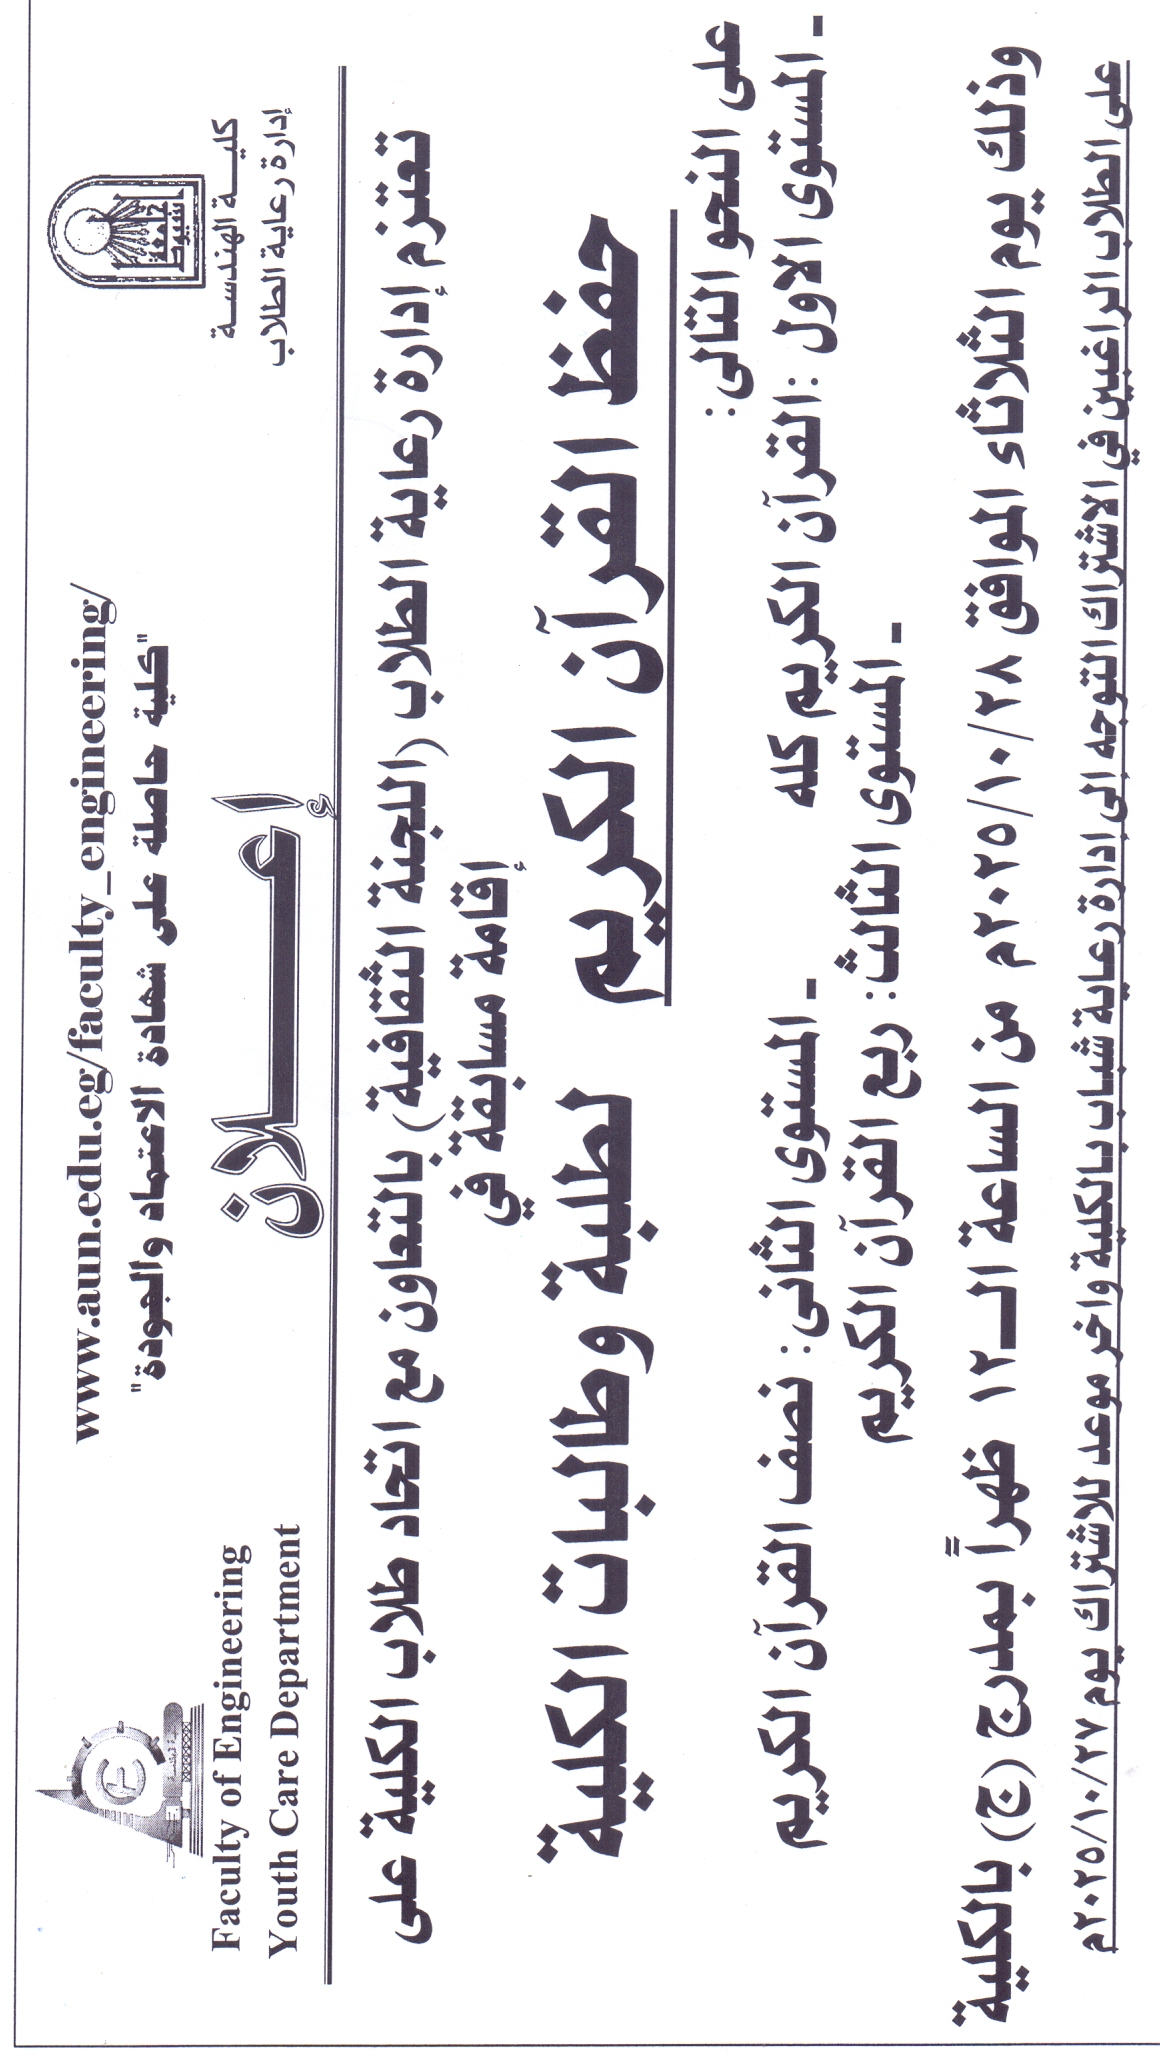 www.aun.edu.eg/faculty_engineering/
"كلية حاصلة على شهادة الاعتماد والجودة"
جامعة
أسيوط
كليــة الهندسـة
إدارة رعاية الطلاب
Faculty of Engineering
Youth Care Department
إعــلان
تعتزم إدارة رعاية الطلاب (اللجنة الثقافية) بالتعاون مع اتحاد طلاب الكلية على
إقامة مسابقة في
حفظ القرآن الكريم لطلبة وطالبات الكلية
على النحو التالى:
- المستوى الاول :القرآن الكريم كله - المستوى الثانى: نصف القرآن الكريم
- المستوى الثالث: ربع القرآن الكريم
وذلك يوم الثلاثاء الموافق ٢٠٢٥/١٠/٢٨م من الساعة الــ١٢ ظهراً بمدرج (ج) بالكلية
على الطلاب الراغبين في الاشتراك التوجه إلى إدارة رعاية شباب بالكلية واخر موعد للاشتراك يوم ٢٠٢٥/١٠/٢٧م